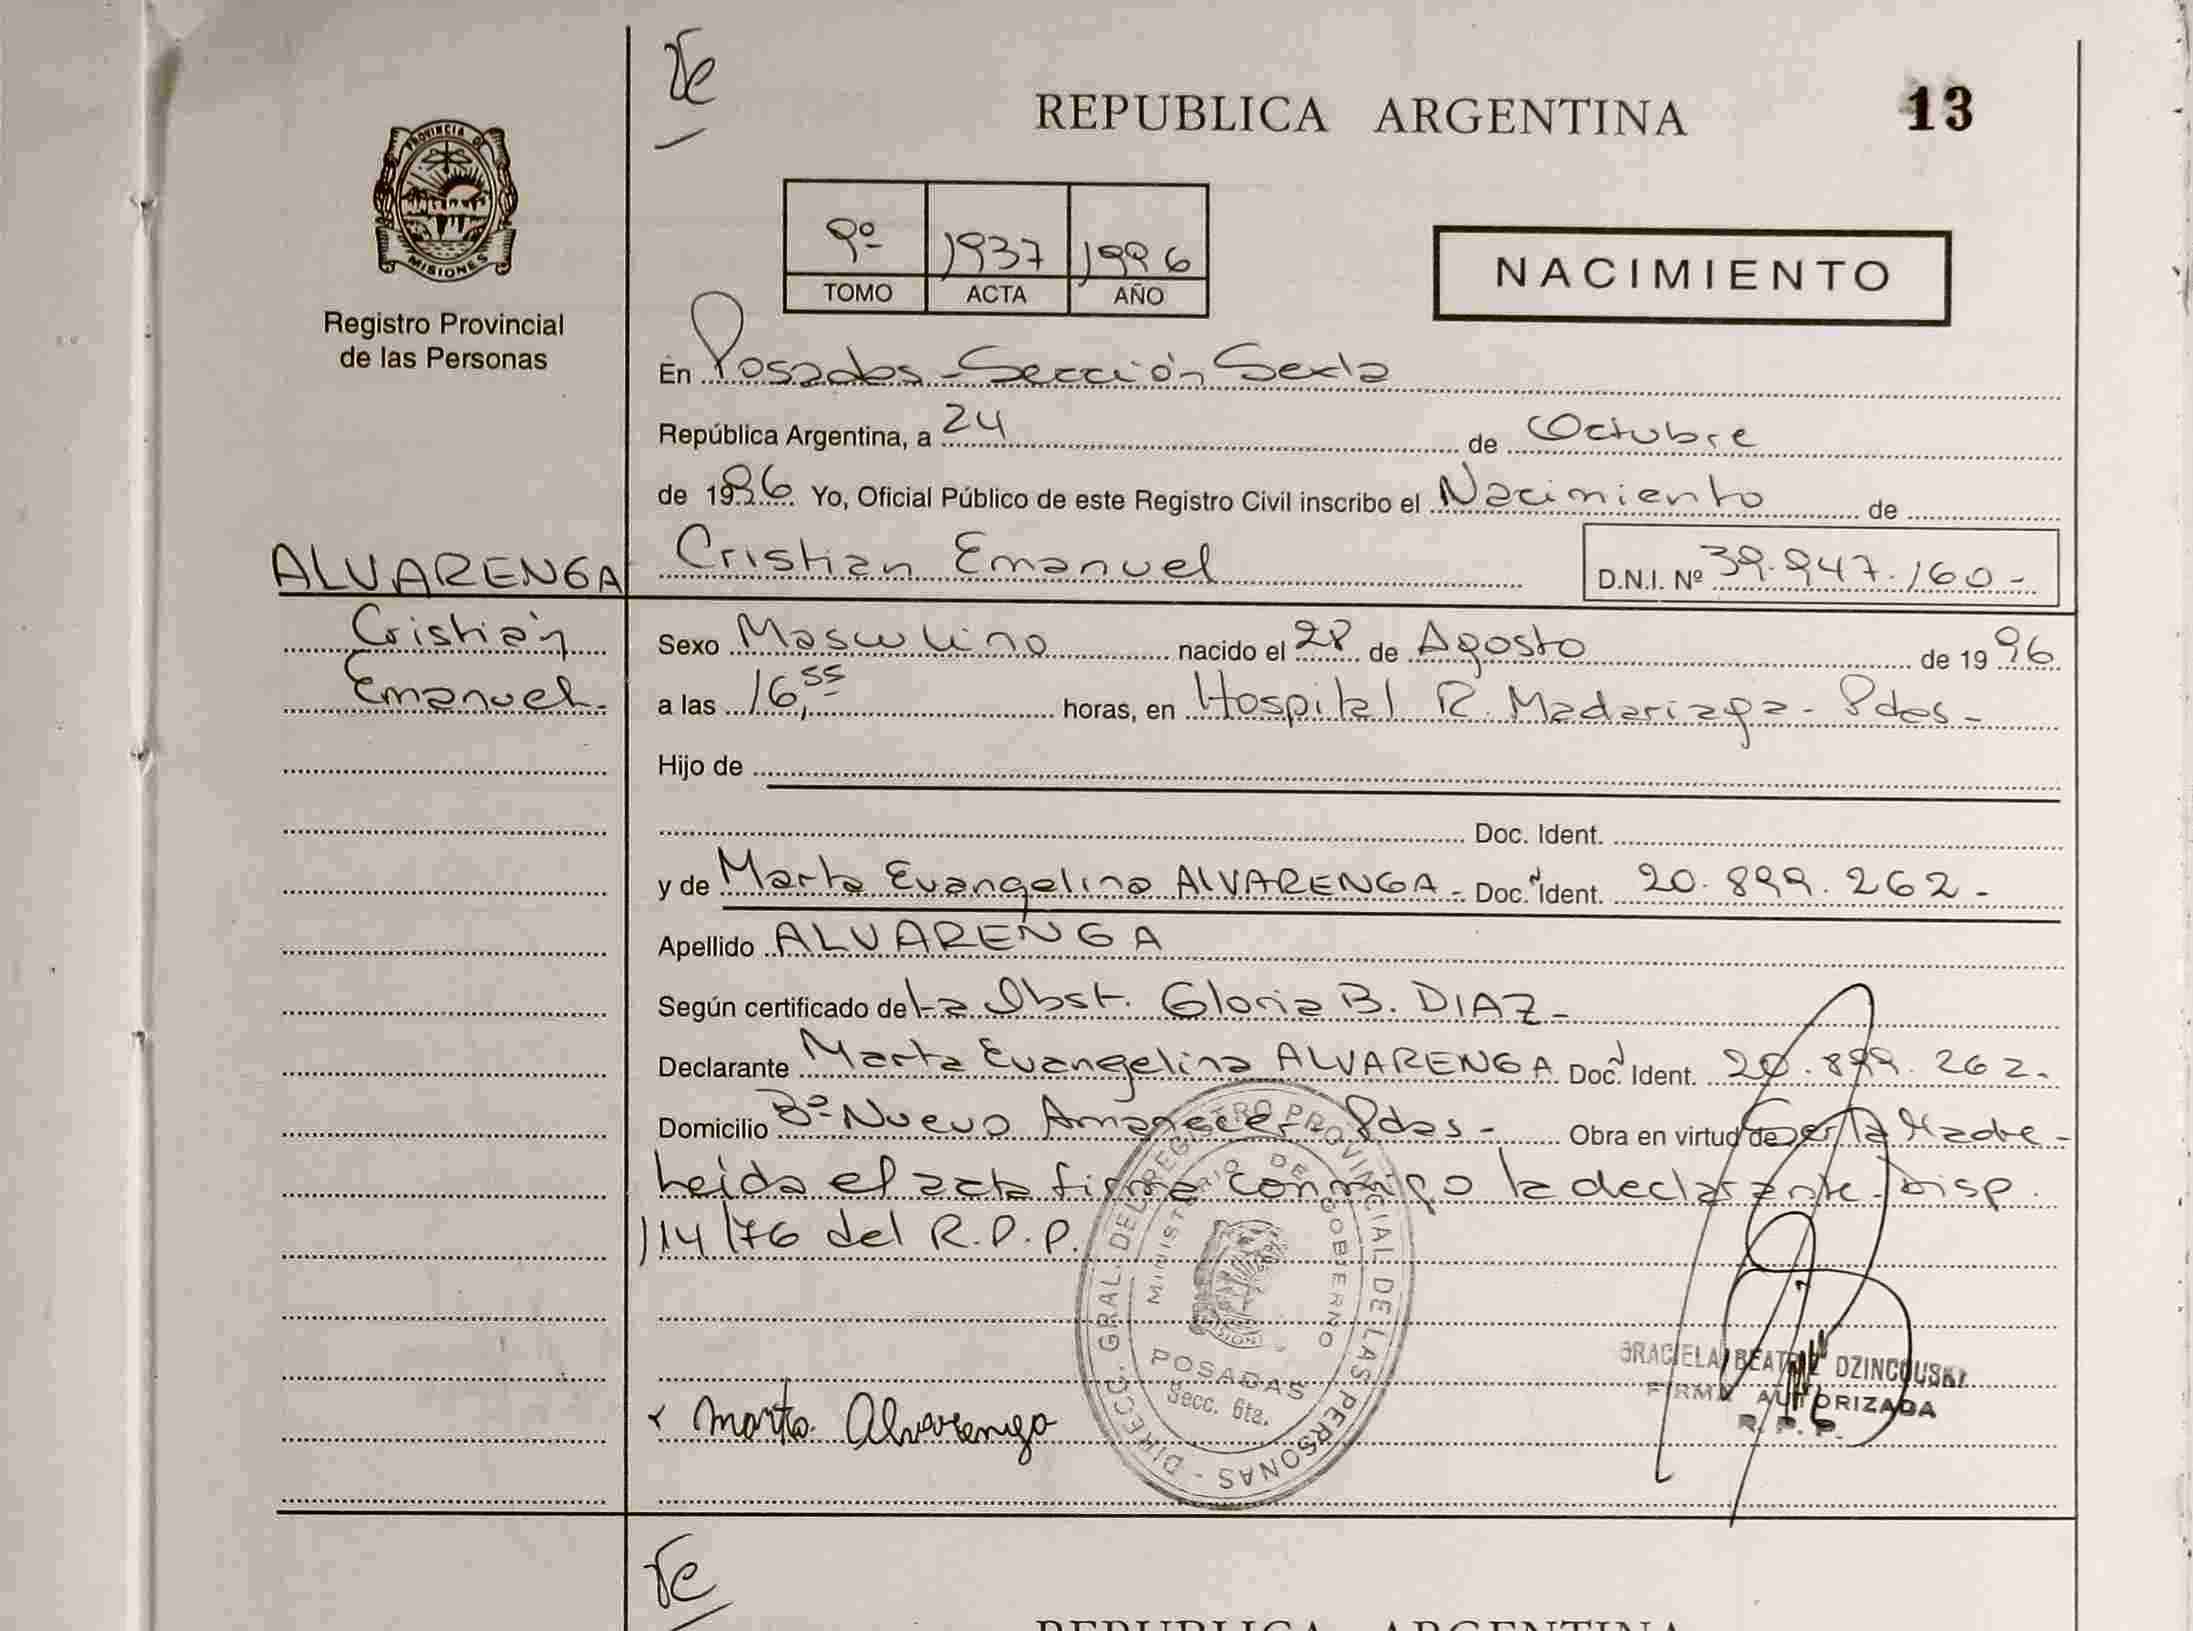 Te
REPUBLICA ARGENTINA
13
PROVINCIA DE
MISIONES
Registro Provincial
de las Personas
9º 1937 1996
TOMO ACTA AÑO
NACIMIENTO
En Posadas - Sección Sexta
República Argentina, a 24 de Octubre
de 1996 Yo, Oficial Público de este Registro Civil inscribo el Nacimiento de
ALVARENGA Cristian Emanuel D.N.I. Nº 39.947.160.-
Cristián Sexo Masculino nacido el 28 de Agosto de 1996
Emanuel.- a las 16,55 horas, en Hospital R. Madariaga - Pdas -
Hijo de
Doc. Ident.
y de Marta Evangelina ALVARENGA - Doc. Ident. 20.899.262 -
Apellido ALVARENGA
Según certificado de La Obst. Gloria B. DIAZ -
Declarante Marta Evangelina ALVARENGA Doc. Ident. 20.899.262-
Domicilio Bº Nuevo Amanecer - Pdas - Obra en virtud de Ser la Madre -
Leída el acta firma conmigo la declarante. Disp.
114/76 del R.P.P.
DIRECC. GRAL. DEL REGISTRO PROVINCIAL DE LAS PERSONAS -
MINISTERIO DE GOBIERNO
POSADAS
Secc. 6ta.
GRACIELA BEATRIZ DZINCOUSKI
FIRMA AUTORIZADA
R. P. P.
Marta Alvarenga
Te
REPUBLICA ARGENTINA